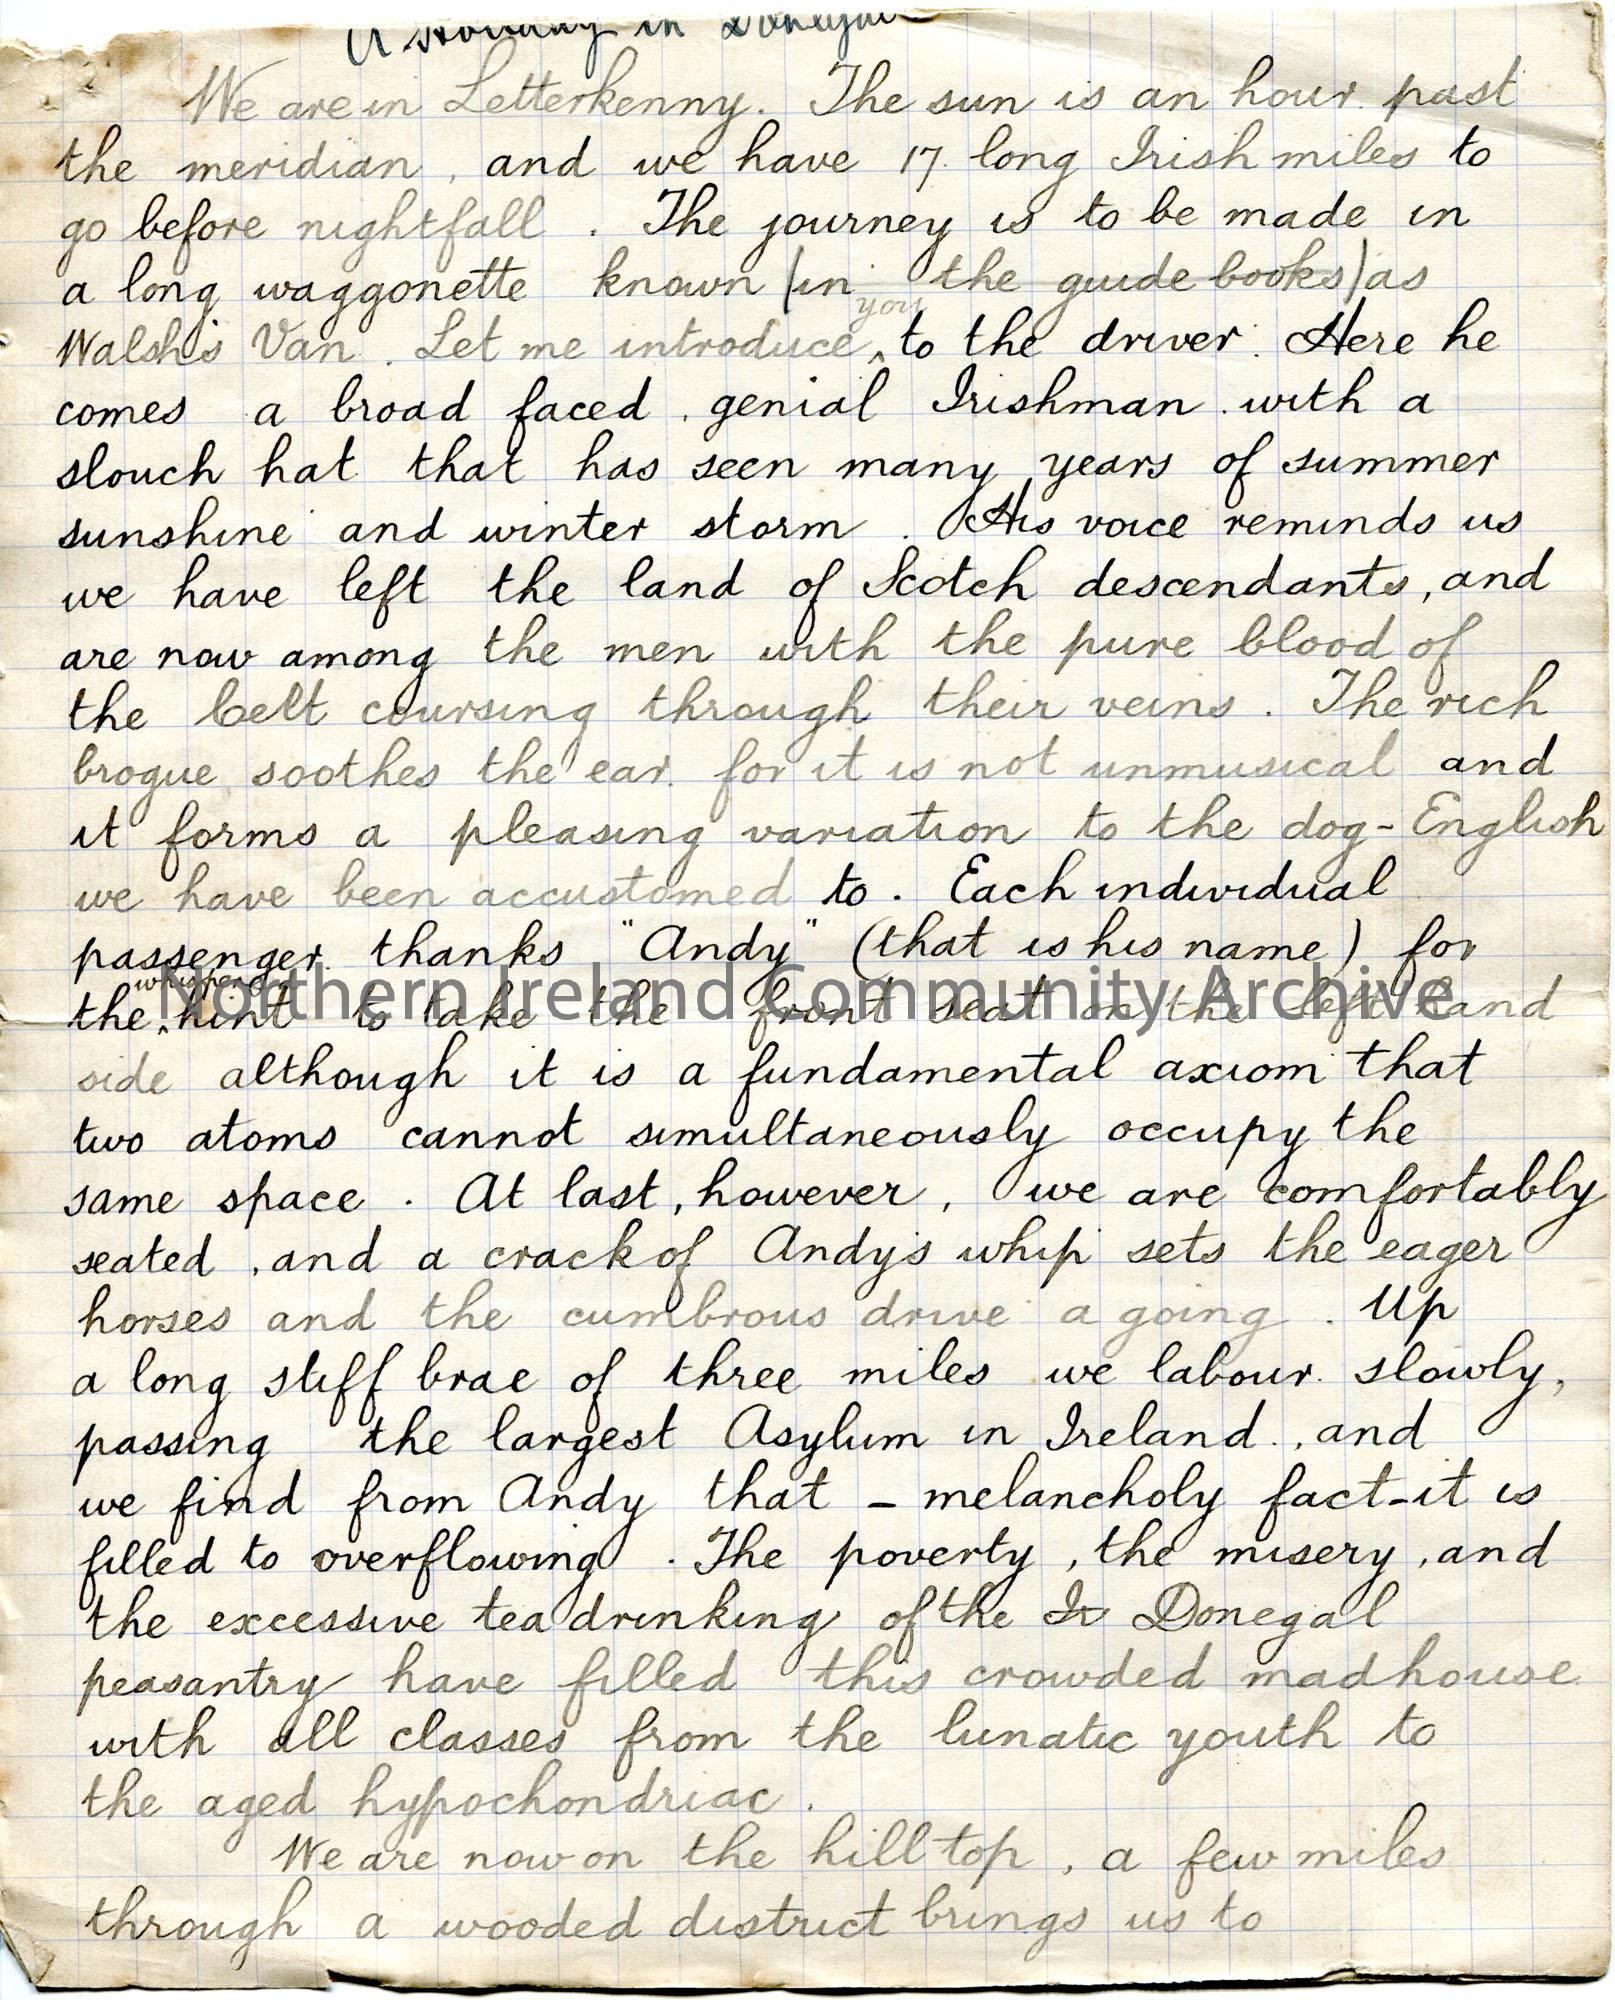 A Holiday in Donegal
We are in Letterkenny. The sun is an hour past
the meridian, and we have 17 long Irish miles to
go before nightfall. The journey is to be made in
a long waggonette known (in the guide books) as
you
Walsh's Van. Let me introduce ^ to the driver. Here he
comes a broad faced, genial Irishman with a
slouch hat that has seen many years of summer
sunshine and winter storm. His voice reminds us
we have left the land of Scotch descendants, and
are now among the men with the pure blood of
the Celt coursing through their veins. The rich
brogue soothes the ear, for it is not unmusical and
it forms a pleasing variation to the dog-English
we have been accustomed to. Each individual
passenger thanks "Andy" (that is his name) for
whispered
the ^ hint to take the front seat on the left hand
side although it is a fundamental axiom that
two atoms cannot simultaneously occupy the
same space. At last, however, we are comfortably
seated, and a crack of Andy's whip sets the eager
horses and the cumbrous drive a going. Up
a long stiff brae of three miles we labour slowly,
passing the largest Asylum in Ireland, and
we find from Andy that - melancholy fact - it is
filled to overflowing. The poverty, the misery, and
the excessive tea drinking of the Ir Donegal
peasantry have filled this crowded madhouse
with all classes from the lunatic youth to
the aged hypochondriac.
We are now on the hill top, a few miles
through a wooded district brings us to
Northern Ireland Community Archive